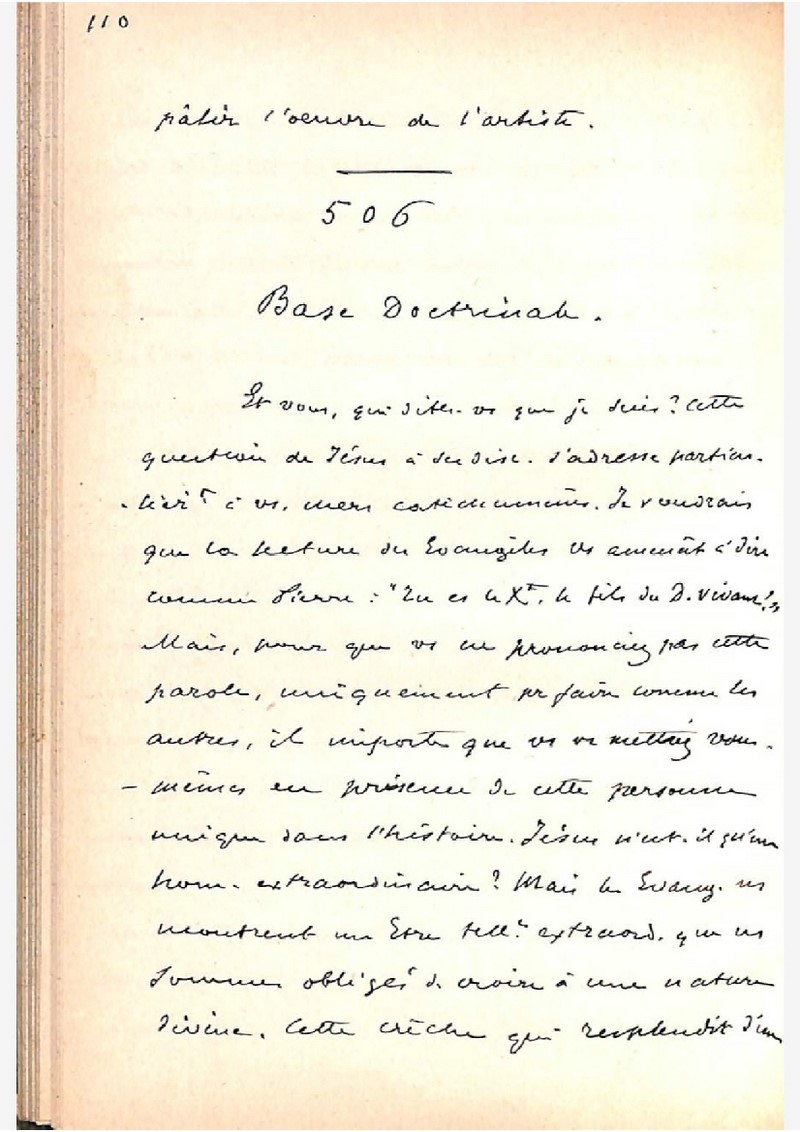 110
pâtir l'oeuvre de l'artiste.
506
Base Doctrinale.
Et vous, qui dites-vs que je suis? Cette
question de Jésus à ses disc. s'adresse particu-
-lièrt à vs, mers catéchumènes. Je voudrais
que la lecture des Evangiles vs amenât à dire
comme Pierre : "Tu es le Xt, le fils du D. vivant!"
Mais, pour que vs ne prononciez pas cette
parole, uniquement pr faire comme les
autres, il importe que vs vs mettiez vous-
- mêmes en présence de cette personne
unique dans l'histoire. Jésus n'est-il qu'un
hom. extraordinaire? Mais les Evang. ns
montrent un Etre tellt extraord. que ns
sommes obligés de croire à une nature
divine. Cette crèche qui resplendit d'une